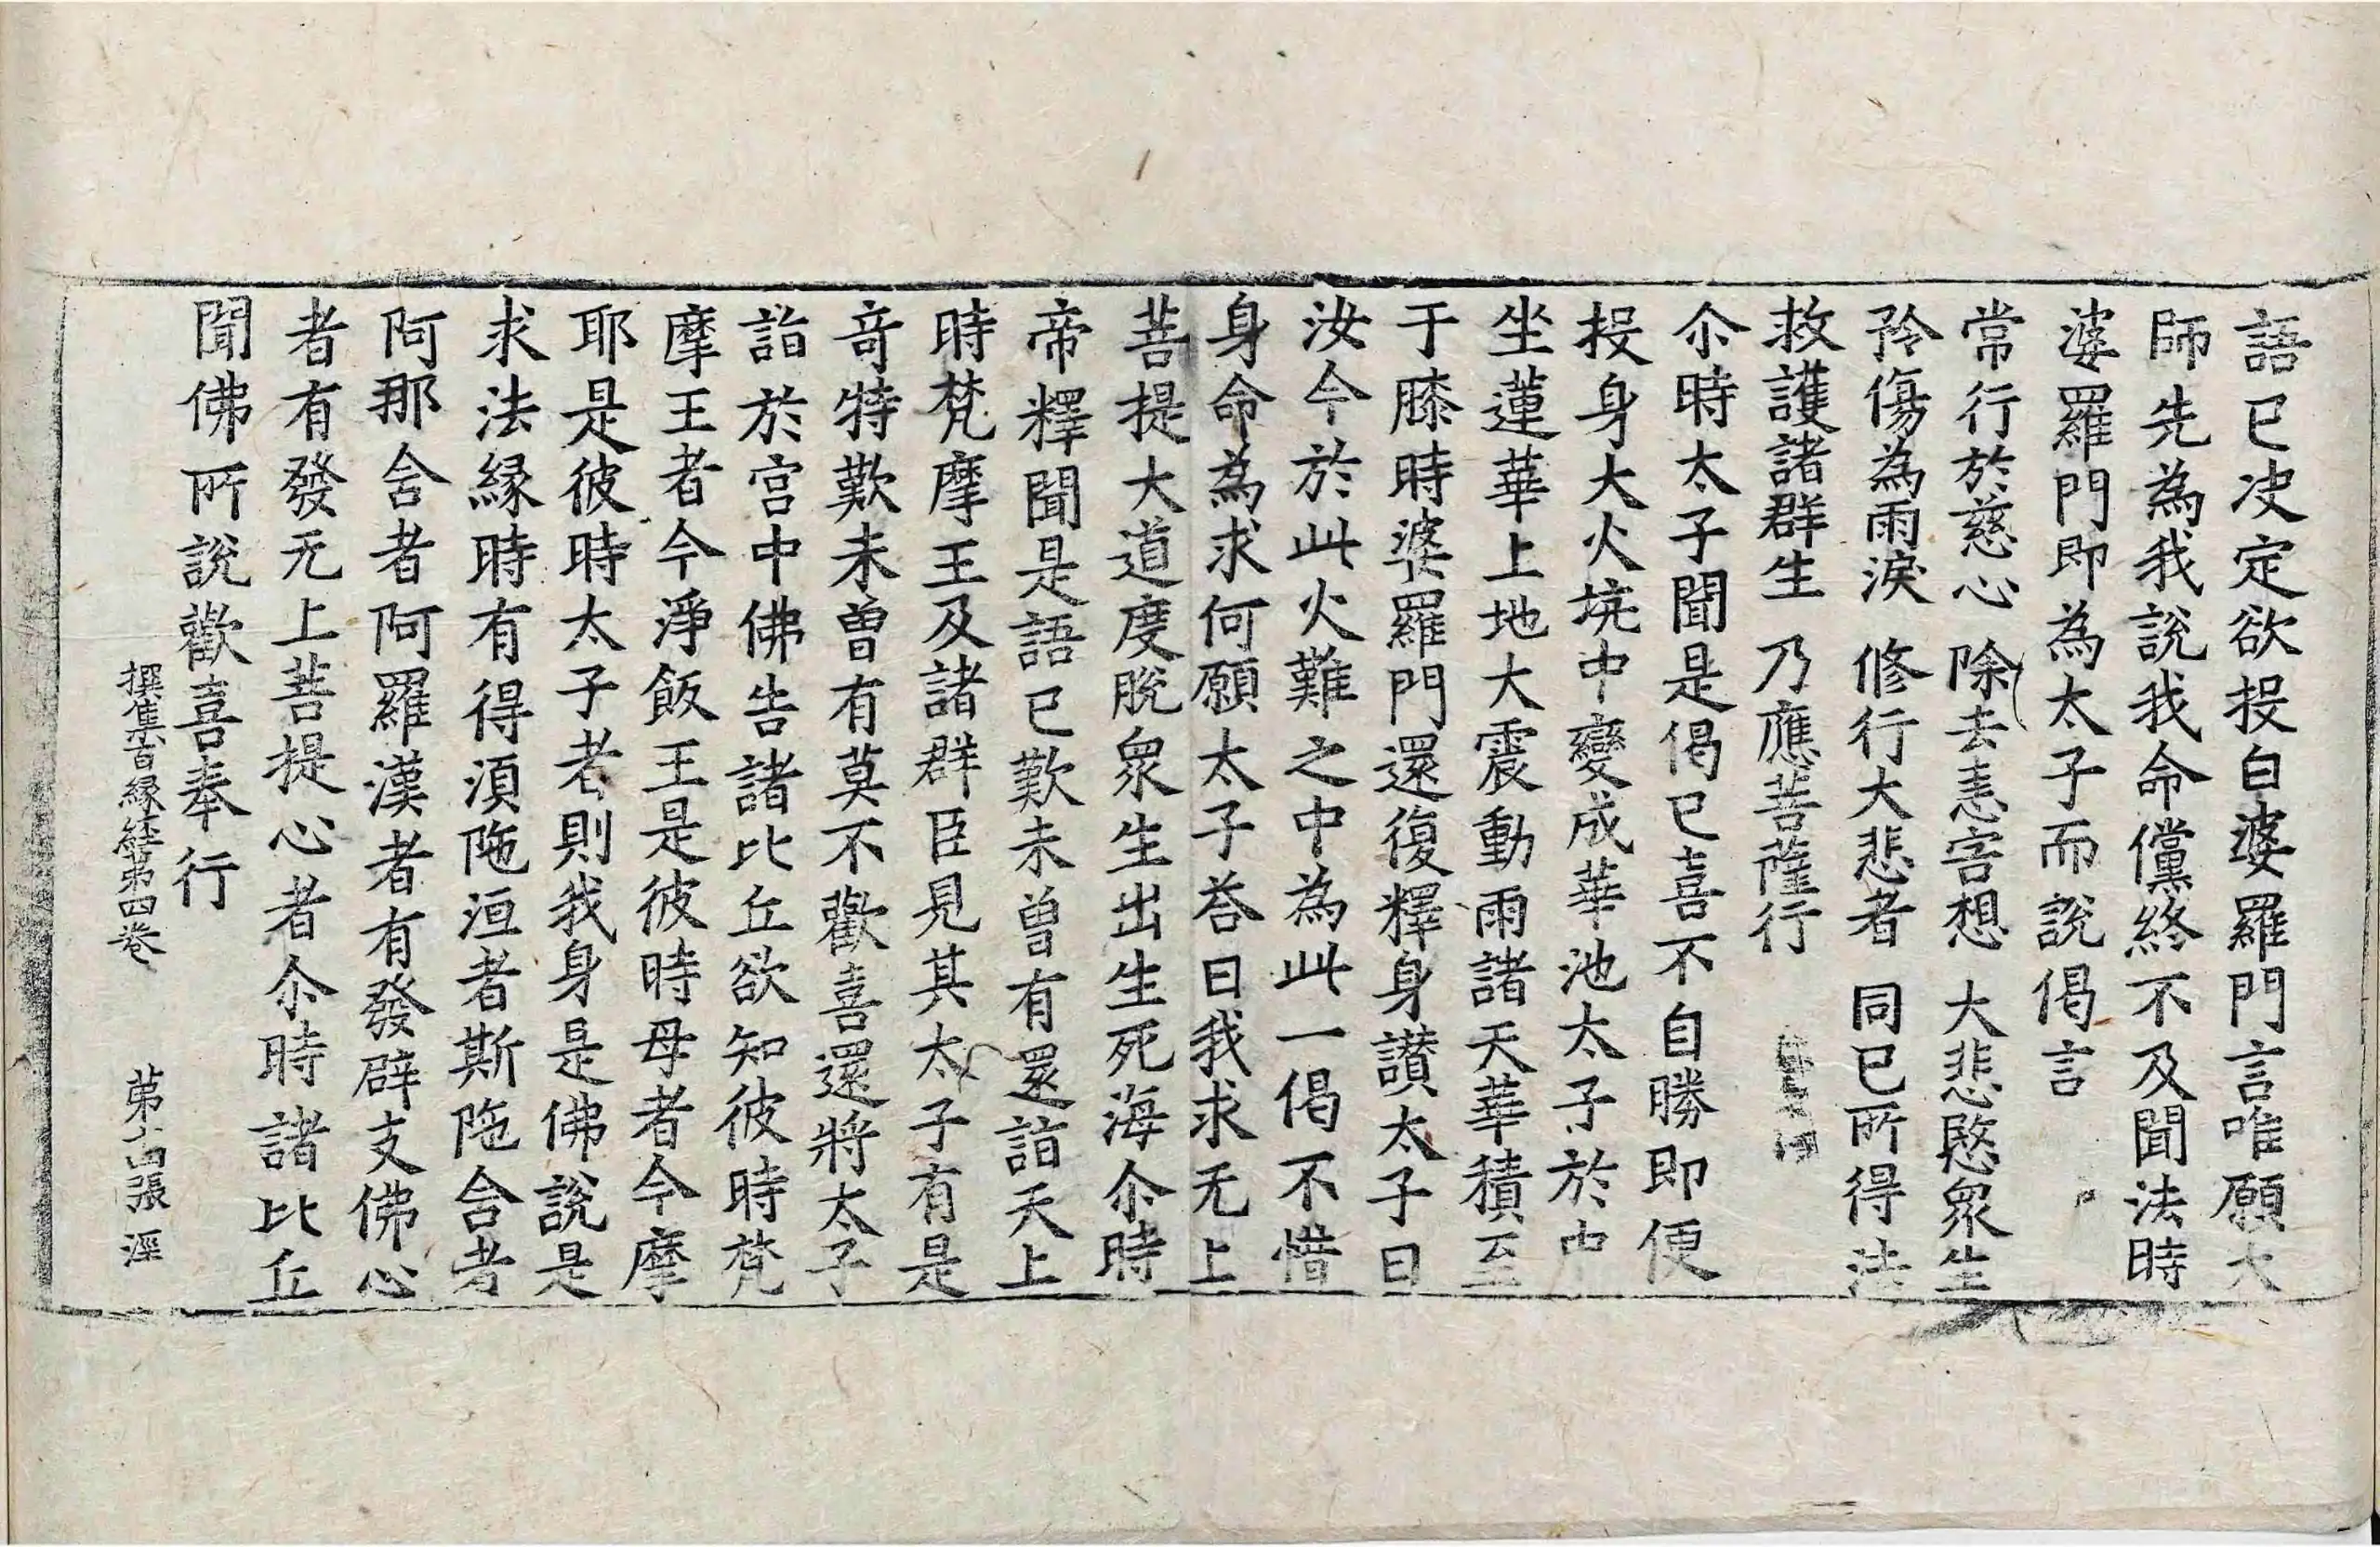 語已决定欲投白婆羅門言唯願大
師先為我說我命儻終不及聞法時
婆羅門即為太子而說偈言
常行於慈心 除去恚害想 大悲愍衆生
矜傷為雨淚 修行大悲者 同已所得法
救護諸群生 乃應菩薩行
尒時太子聞是偈已喜不自勝即便
投身大火坑中變成華池太子於中
坐蓮華上地大震動雨諸天華積至
于膝時婆羅門還復釋身讃太子曰
汝今於此火難之中為此一偈不惜
身命為求何願太子荅曰我求无上
菩提大道度脫衆生出生死海尒時
帝釋聞是語已歎未曾有還詣天上
時梵摩王及諸群臣見其太子有是
奇特歎未曾有莫不歡喜還將太子
詣於宮中佛告諸比丘欲知彼時梵
摩王者今淨飯王是彼時母者今摩
耶是彼時太子者則我身是佛說是
求法緣時有得湏陁洹者斯陁含者
阿那含者阿羅漢者有發辟支佛心
者有發无上菩提心者尒時諸比丘
聞佛所說歡喜奉行
撰集百緣經第四卷 第十四張 淫